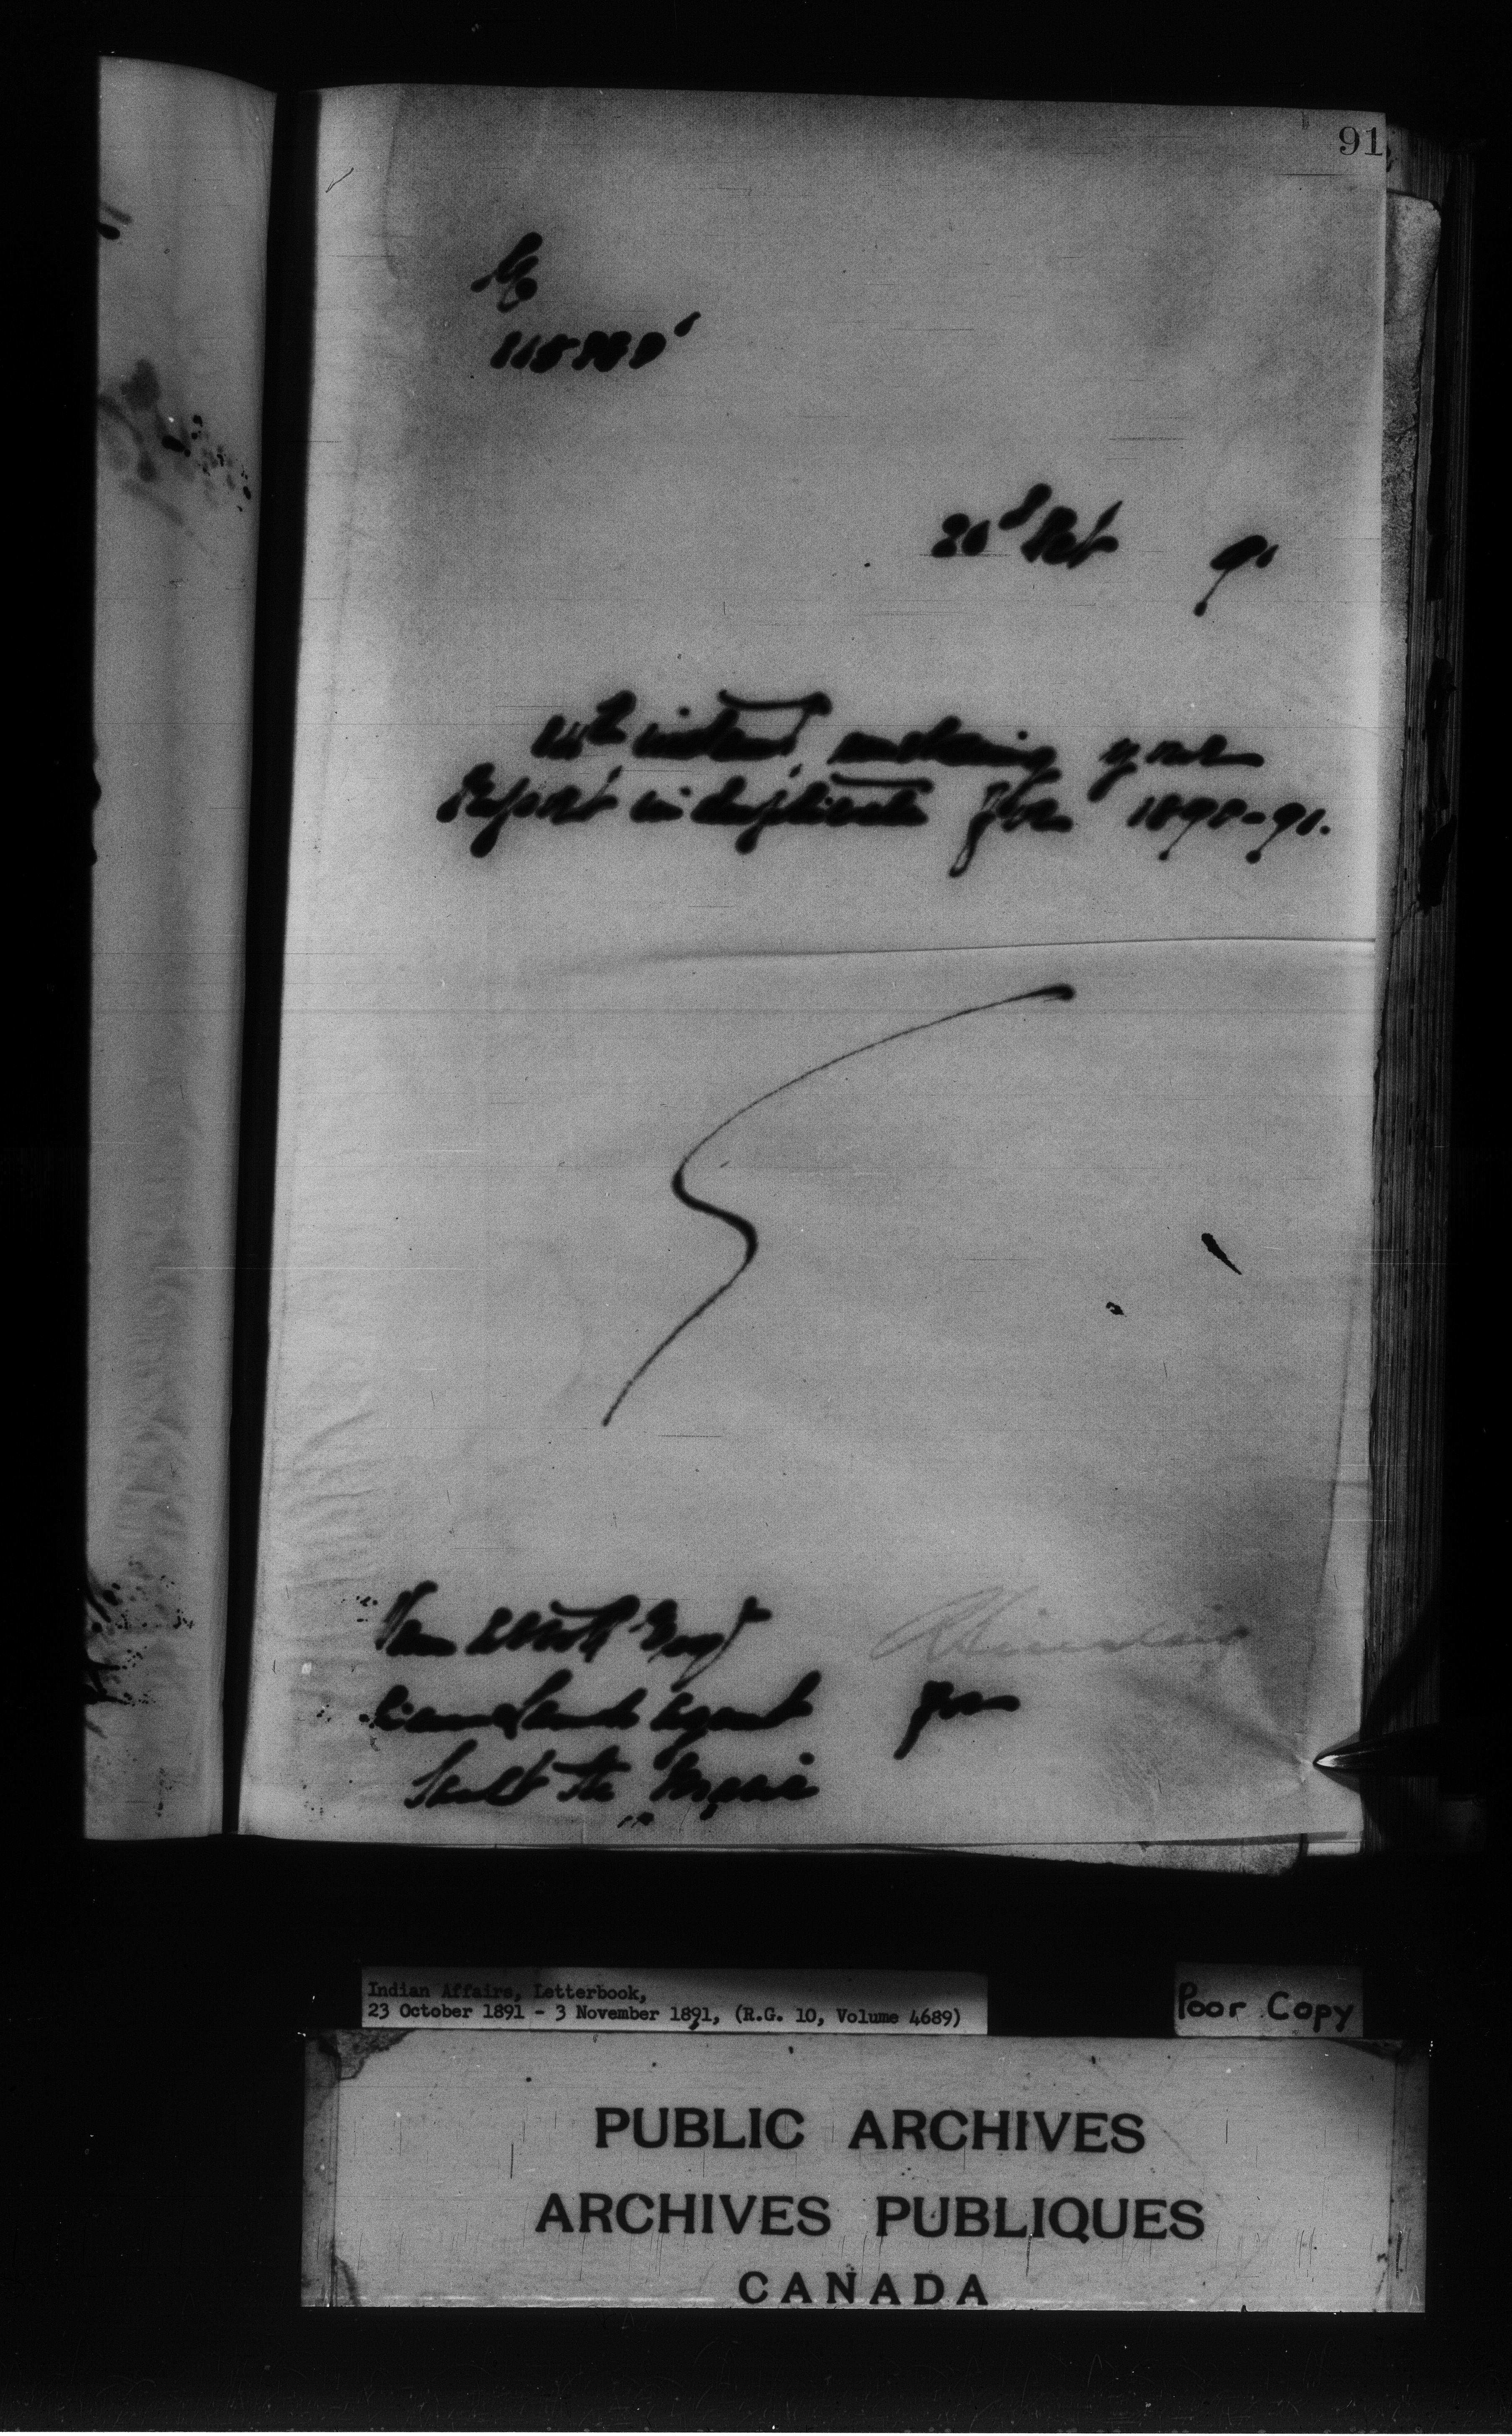 91
Oct 91
14th instant, enclosing your
Report in duplicate for 1890-91.
Wm Esqr
Land Agent for
Sault Ste Marie
Indian Affairs, Letterbook,
23 October 1891 - 3 November 1891, (R.G. 10, Volume 4689)
Poor Copy
PUBLIC ARCHIVES
ARCHIVES PUBLIQUES
CANADA